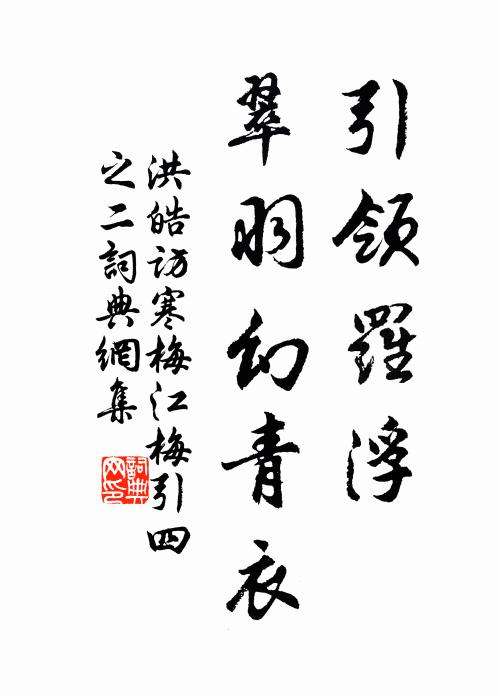 引領羅浮
翠羽幻青衣
洪皓訪寒梅江梅引四
之二詞典網集
詞典
网印